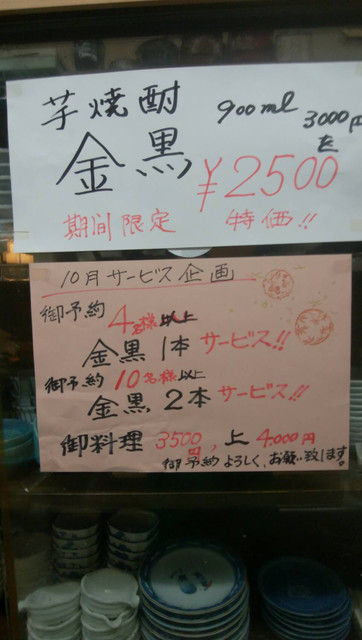 芋焼酎 900ml 3000円を
金黒 ¥2500
期間限定 特価!!
10月サービス企画
御予約 4名様以上
金黒 1本 サービス!!
御予約 10名様以上
金黒 2本 サービス!!
御料理 3500円, 上 4.000円
御予約よろしく、お願い致します。